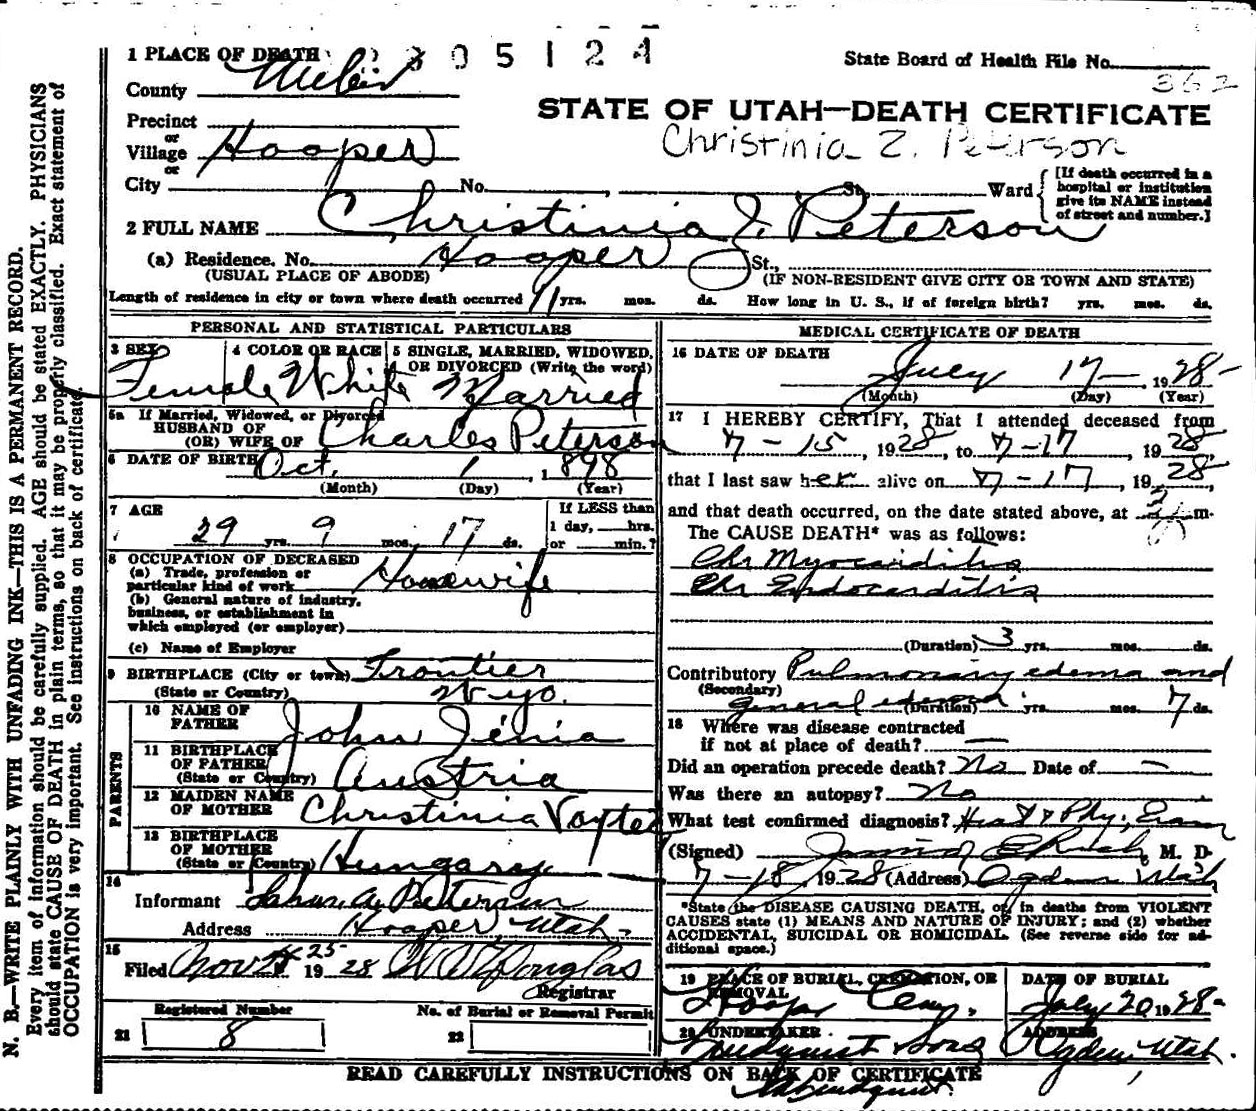 2305124
State Board of Health File No.
362
STATE OF UTAH—DEATH CERTIFICATE
Christinia Z. Peterson
1 PLACE OF DEATH
County Weber
Precinct
or
Village Hooper
or
City No. , St., Ward
[If death occurred in a
hospital or institution
give its NAME instead
of street and number.]
2 FULL NAME Christinia Z. Peterson
(a) Residence. No. Hooper St.,
(USUAL PLACE OF ABODE) (IF NON-RESIDENT GIVE CITY OR TOWN AND STATE)
Length of residence in city or town where death occurred 11 yrs. mos. ds. How long in U. S., if of foreign birth? yrs. mos. ds.
PERSONAL AND STATISTICAL PARTICULARS
3 SEX 4 COLOR OR RACE 5 SINGLE, MARRIED, WIDOWED,
OR DIVORCED (Write the word)
Female White Married
5a If Married, Widowed, or Divorced
HUSBAND OF
(OR) WIFE OF Charles Peterson
6 DATE OF BIRTH Oct. 1, 1898
(Month) (Day) (Year)
7 AGE If LESS than
29 yrs. 9 mos. 17 ds. 1 day, hrs.
or min.?
8 OCCUPATION OF DECEASED
(a) Trade, profession or
particular kind of work Housewife
(b) General nature of industry,
business, or establishment in
which employed (or employer)
(c) Name of Employer
9 BIRTHPLACE (City or town) Frontier
(State or Country) Wyo.
PARENTS
10 NAME OF
FATHER John Zenia
11 BIRTHPLACE
OF FATHER
(State or Country) Austria
12 MAIDEN NAME
OF MOTHER Christinia Voytec
13 BIRTHPLACE
OF MOTHER
(State or Country) Hungary
14
Informant Peterson
Address Hooper, Utah-
15
Filed Nov 25 1928 Douglas
Registrar
Registered Number No. of Burial or Removal Permit
21 8 22
MEDICAL CERTIFICATE OF DEATH
16 DATE OF DEATH
July 17- , 1928-
(Month) (Day) (Year)
17 I HEREBY CERTIFY, That I attended deceased from
7-15, 1928, to 7-17, 1928,
that I last saw her alive on 7-17, 1928,
and that death occurred, on the date stated above, at m.
The CAUSE DEATH* was as follows:
Chr Myocarditis
Chr Endocarditis
(Duration) 3 yrs. mos. ds.
Contributory Pulmonary edema and
(Secondary)
general edema (Duration) yrs. mos. 7 ds.
18 Where was disease contracted
if not at place of death? —
Did an operation precede death? No Date of —
Was there an autopsy? No
What test confirmed diagnosis? Phy. Exam
(Signed) Rich, M. D.
7-18, 1928 (Address) Ogden Utah
*State the DISEASE CAUSING DEATH, or, in deaths from VIOLENT
CAUSES state (1) MEANS AND NATURE OF INJURY; and (2) whether
ACCIDENTAL, SUICIDAL OR HOMICIDAL. (See reverse side for ad-
ditional space.)
19 PLACE OF BURIAL, CREMATION, OR
REMOVAL
Hooper Cemy.
DATE OF BURIAL
July 20 1928-
20 UNDERTAKER
Lindquist Sons
ADDRESS
Ogden, Utah.
READ CAREFULLY INSTRUCTIONS ON BACK OF CERTIFICATE
Lindquist.
N. B.—WRITE PLAINLY WITH UNFADING INK—THIS IS A PERMANENT RECORD.
Every item of information should be carefully supplied. AGE should be stated EXACTLY. PHYSICIANS
should state CAUSE OF DEATH in plain terms, so that it may be properly classified. Exact statement of
OCCUPATION is very important. See instructions on back of certificate.